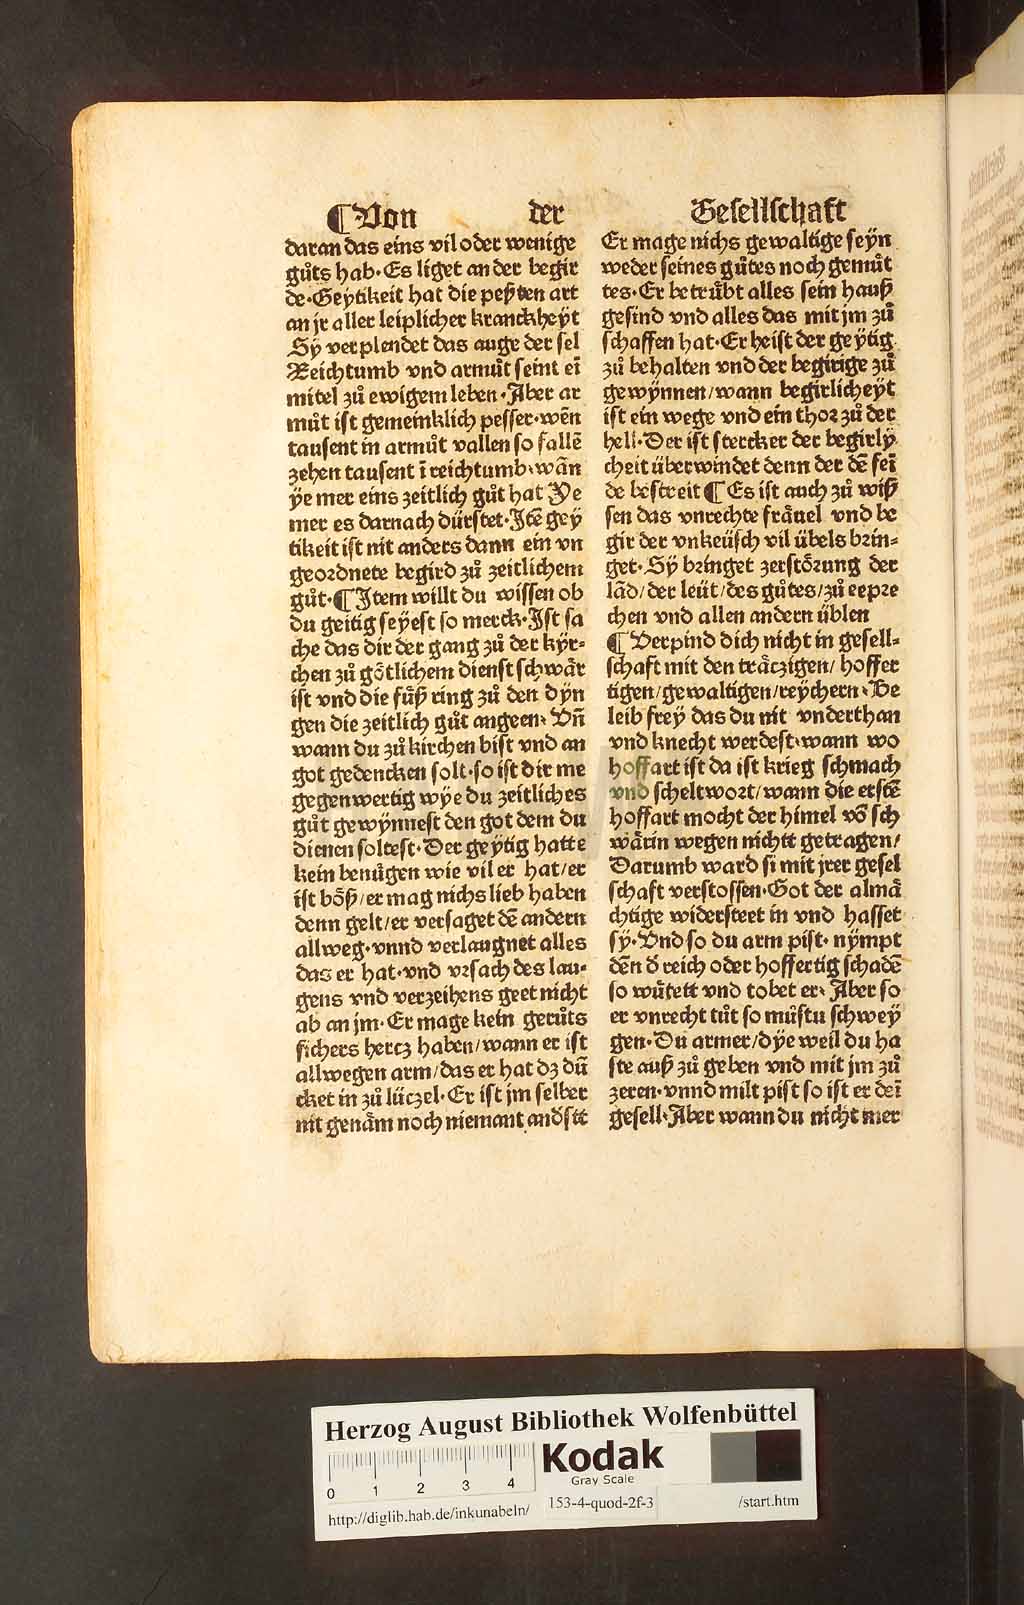 ¶ Von der Gesellschaft
daran das eins vil oder wenige
gůts hab· Es liget an der begir
de· Geytikeit hat die peßten art
an jr aller leiplicher kranckheÿt
Sÿ verplendet das auge der sel
Reichtumb vnd armůt seint eī
mitel zů ewigem leben· Aber ar
můt ist gemeinklich pesser· wēn
tausent in armůt vallen so fallē
zehen tausent ī reichtumb· wān
ÿe mer eins zeitlich gůt hat Ye
mer es darnach dürstet· Jtē geÿ
tikeit ist nit anders dann ein vn
geordnete begird zů zeitlichem
gůt· ¶ Jtem willt du wissen ob
du geitig seyest so merck· Jst sa
che das dir der gang zů der kÿr-
chen zů gȫtlichem dienst schwår
ist vnd die fůß ring zů den dÿn
gen die zeitlich gůt angeen· Vn̄
wann du zů kirchen bist vnd an
got gedencken solt· so ist dir me
gegenwertig wÿe du zeitliches
gůt gewÿnnest den got dem du
dienen soltest· Der geÿtig hatte
kein benůgen wie vil er hat/er
ist bȫß/er mag nichs lieb haben
denn gelt/er versaget dē andern
allweg· vnnd verlaugnet alles
das er hat· vnd vrsach des lau-
gens vnd verzeihens geet nicht
ab an jm· Er mage kein gerůts
sichers hercz haben/wann er ist
allwegen arm/das er hat dz dū
cket in zů lüczel· Er ist jm selber
nit genåm noch niemant andstt
Er mage nichs gewaltige seÿn
weder seines gůtes noch gemůt
tes· Er betrůbt alles sein hauß
gesind vnd alles das mit jm zů
schaffen hat· Er heist der geÿtig
zů behalten vnd der begirige zů
gewÿnnen/wann begirlicheÿt
ist ein wege vnd ein thor zů der
hell· Der ist stercker der begirlÿ
cheit überwindet denn der dē feī
de bestreit ¶ Es ist auch zů wiß
sen das vnrechte fråuel vnd be
gir der vnkeüsch vil übels brin-
get· Sÿ bringet zerstȫrung der
lād/der leüt/des gůtes/zů eepre
chen vnd allen andern üblen
¶ Verpind dich nicht in gesell-
schaft mit den tråczigen/hoffer
tigen/gewaltigen/reÿchern· Be
leib freÿ das du nit vnderthan
vnd knecht werdest· wann wo
hoffart ist da ist krieg schmach
vnd scheltwort/wann die erstē
hoffart mocht der himel vō sch
wårin wegen nichtt getragen/
Darumb ward si mit jrer gesel
schaft verstossen· Got der almå
chtige widersteet in vnd hasset
sÿ· Vnd so du arm pist· nÿmpt
dēn d̄ reich oder hoffertig schadē
so wůtett vnd tobet er· Aber so
er vnrecht tůt so můstu schweÿ
gen· Du armer/dÿe weil du ha
ste auß zů geben vnd mit jm zů
zeren· vnnd milt pist so ist er deī
gesell· Aber wann du nicht mer
Herzog August Bibliothek Wolfenbüttel
Kodak
Gray Scale
0 1 2 3 4
http://diglib.hab.de/inkunabeln/ 153-4-quod-2f-3 /start.htm